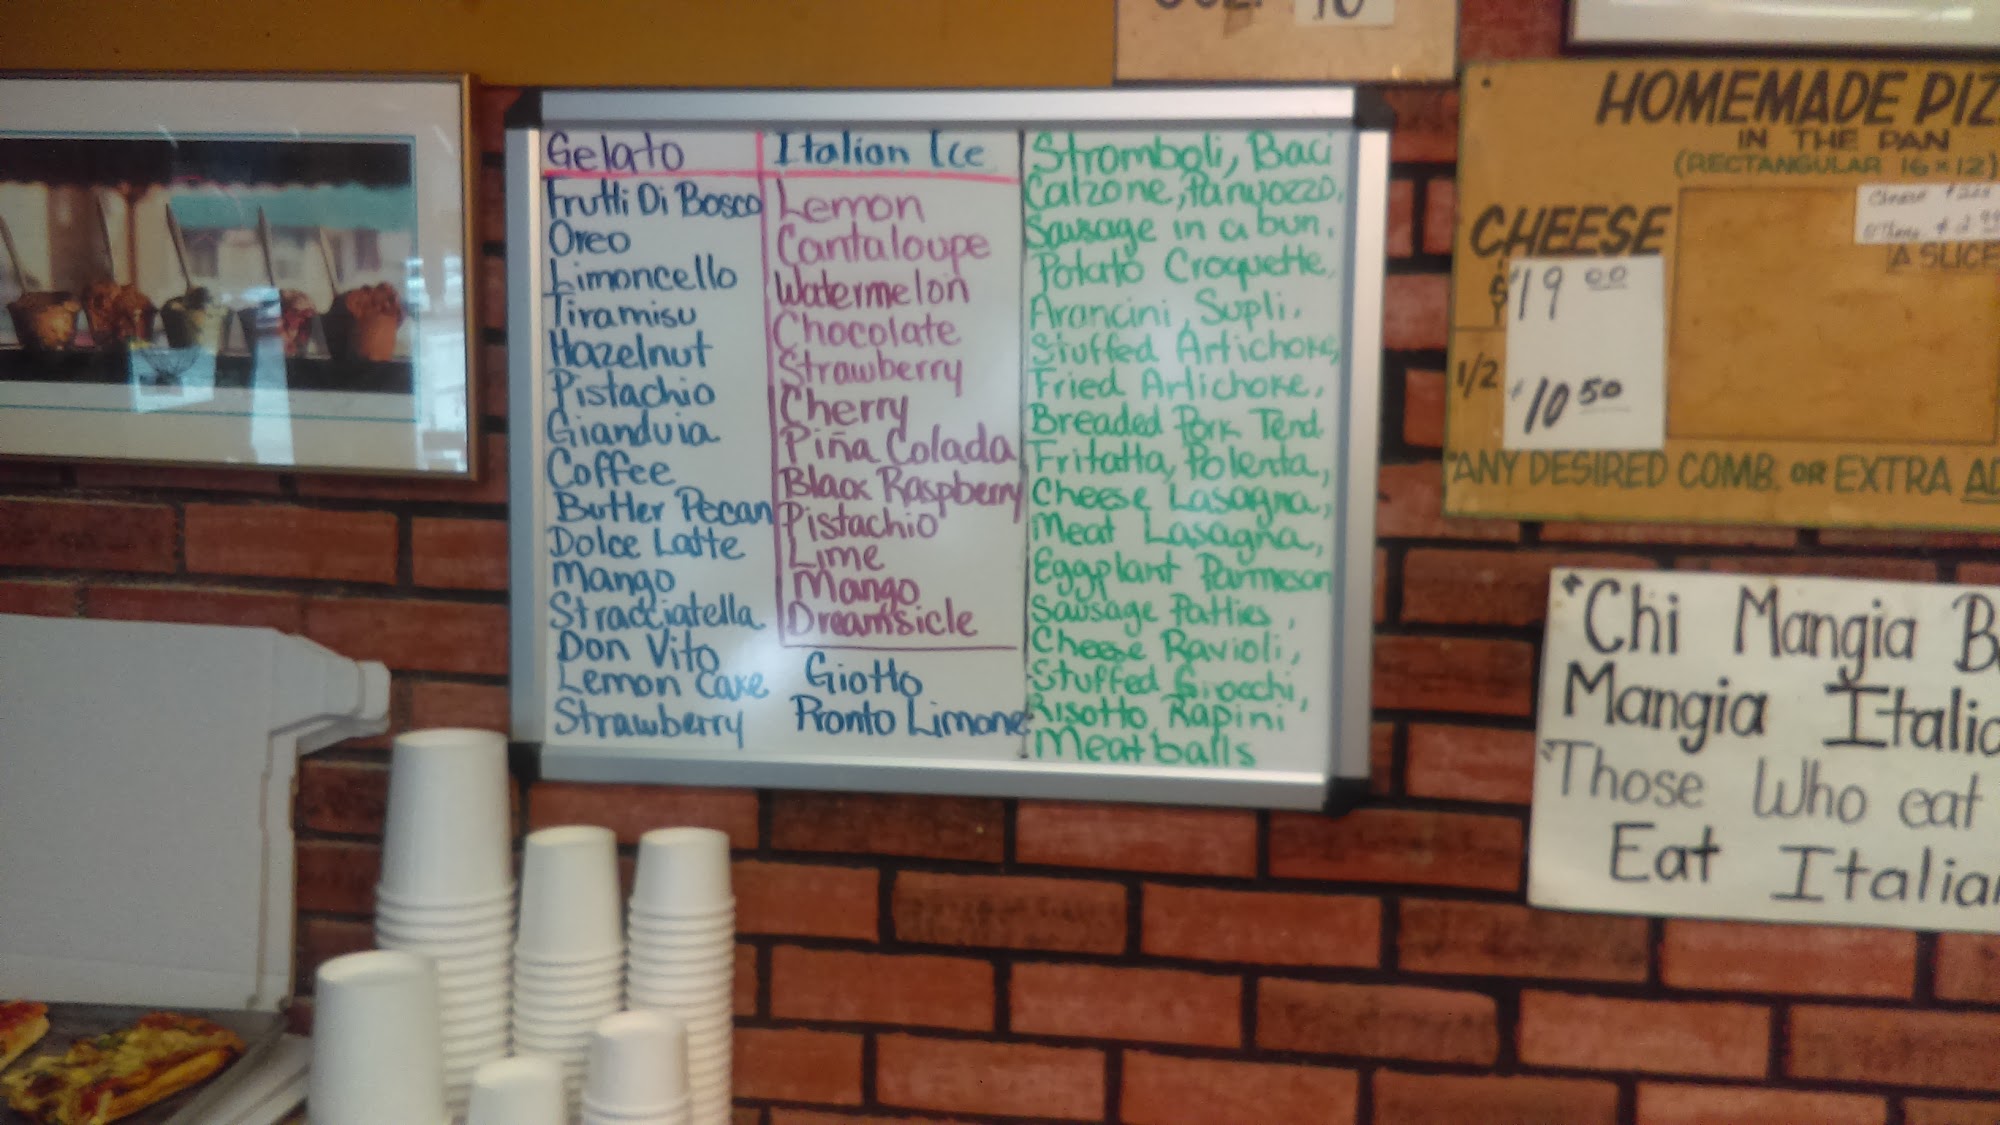 10
Gelato
Frutti Di Bosco
Oreo
Limoncello
Tiramisu
Hazelnut
Pistachio
Gianduia
Coffee
Butter Pecan
Dolce Latte
Mango
Stracciatella
Don Vito
Lemon Cake
Strawberry
Italian Ice
Lemon
Cantaloupe
Watermelon
Chocolate
Strawberry
Cherry
Piña Colada
Black Raspberry
Pistachio
Lime
Mango
Dreamsicle
Giotto
Pronto Limone
Stromboli, Baci
Calzone, Panuozzo,
Sausage in a bun,
Potato Croquette,
Arancini, Supli,
Stuffed Artichoke,
Fried Artichoke,
Breaded Pork Tend
Fritatta, Polenta,
Cheese Lasagna,
Meat Lasagna,
Eggplant Parmesan
Sausage Patties,
Cheese Ravioli,
Stuffed Gnocchi,
Risotto Rapini
Meatballs
HOMEMADE PIZ
IN THE PAN
(RECTANGULAR 16x12)
CHEESE
$19 00
1/2 $10 50
Cheese
Others
A SLICE
ANY DESIRED COMB. OR EXTRA AD
"Chi Mangia B
Mangia Italia
"Those Who eat
Eat Italian